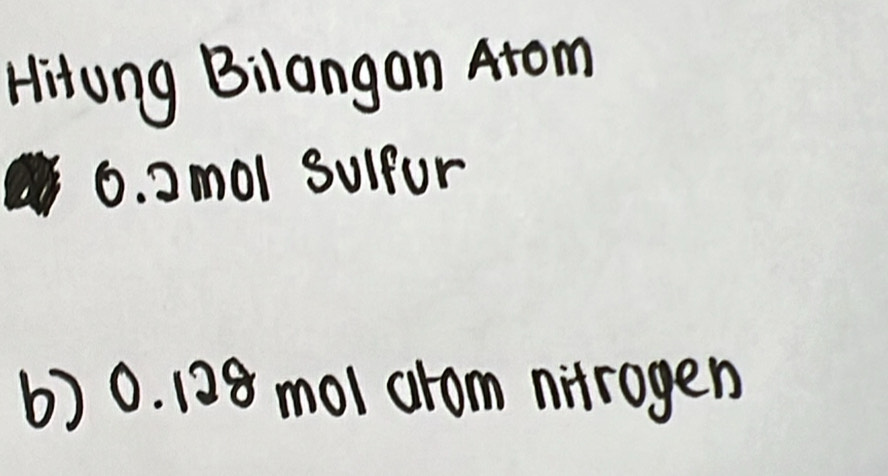 Hitung Bilangan Atom
0.2mol Sulfur
b) 0.128 mol atom nitrogen